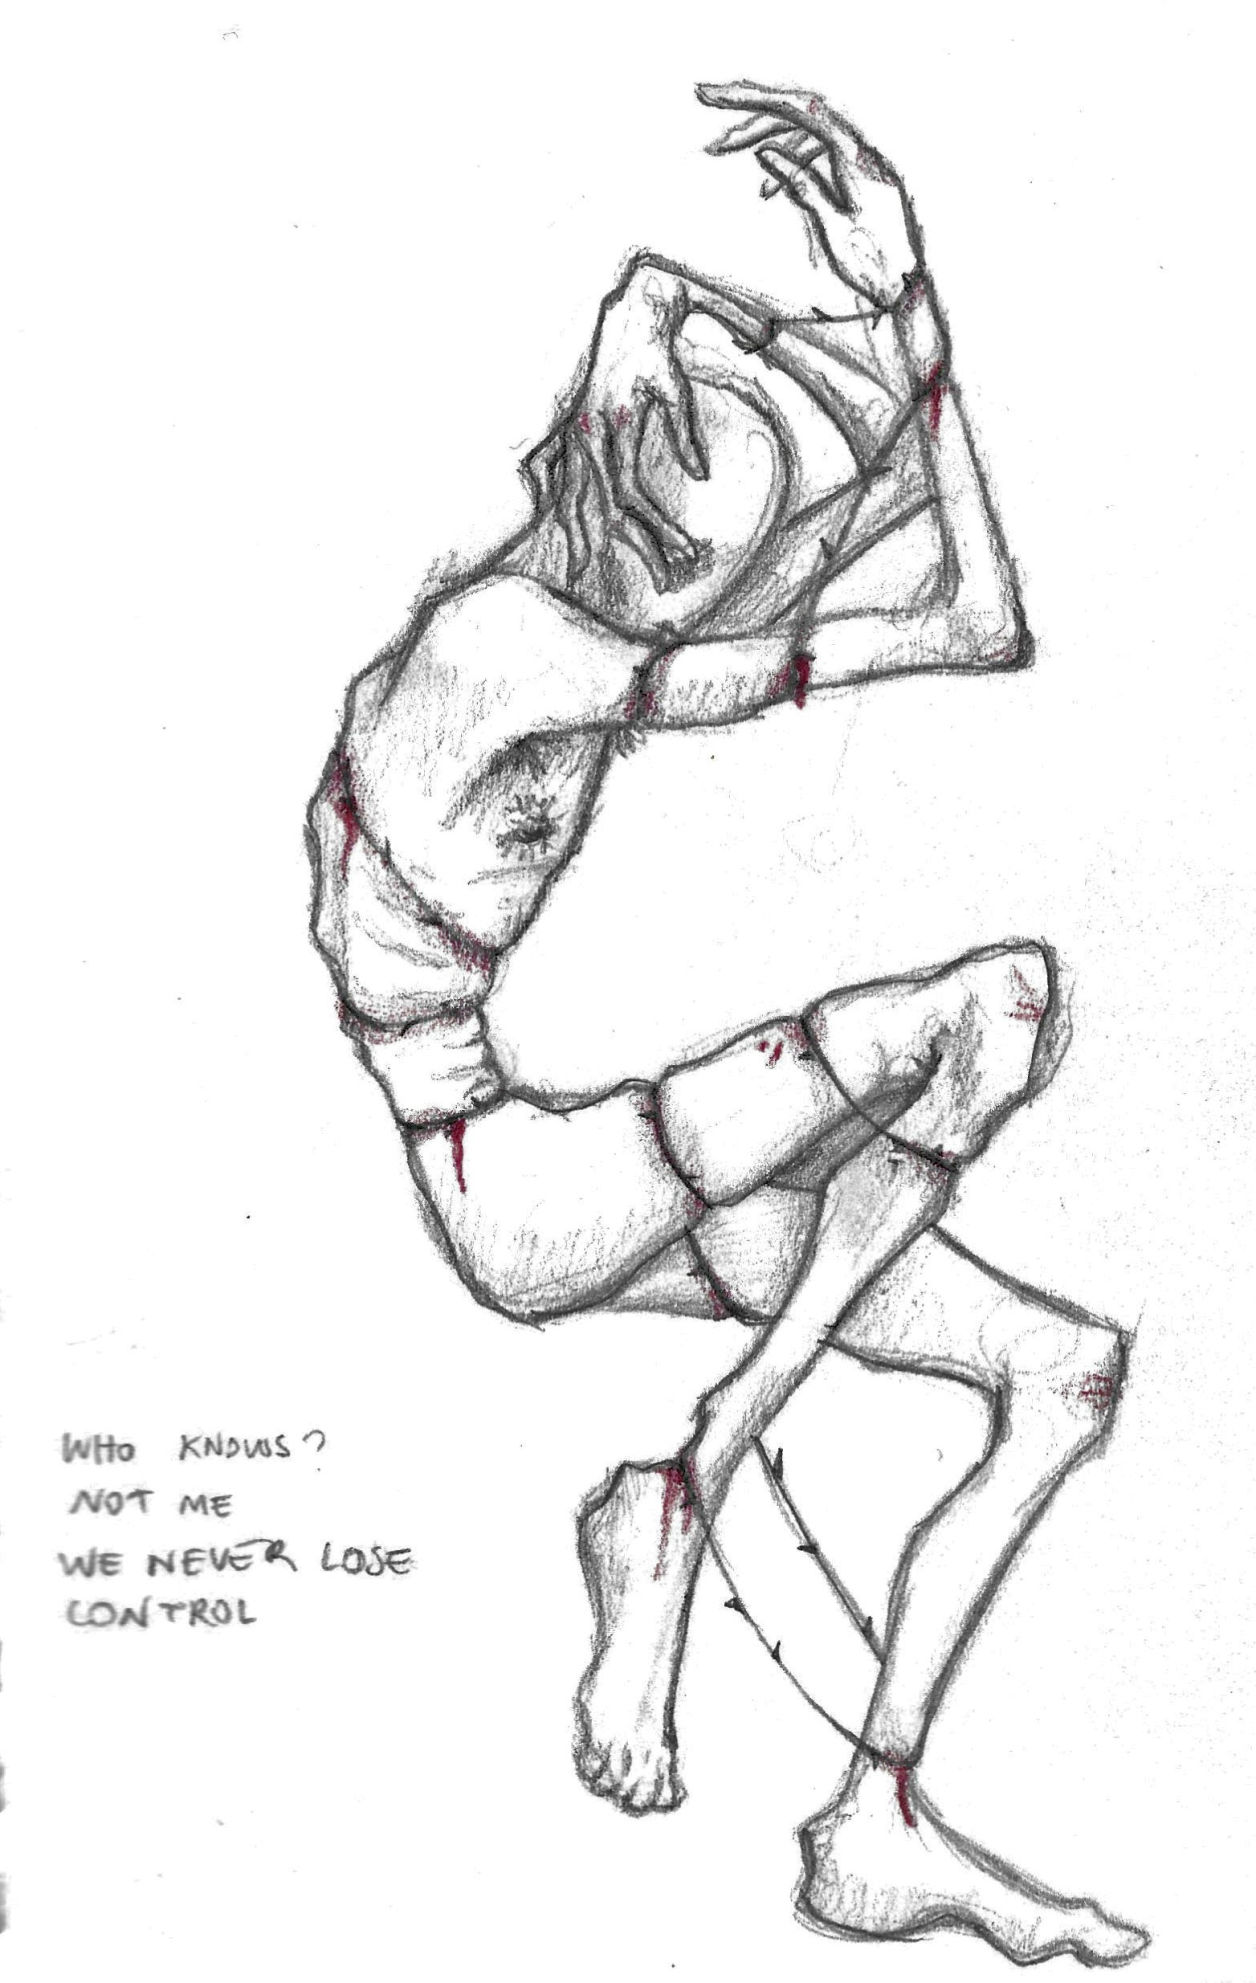 WHO KNOWS?
NOT ME
WE NEVER LOSE
CONTROL